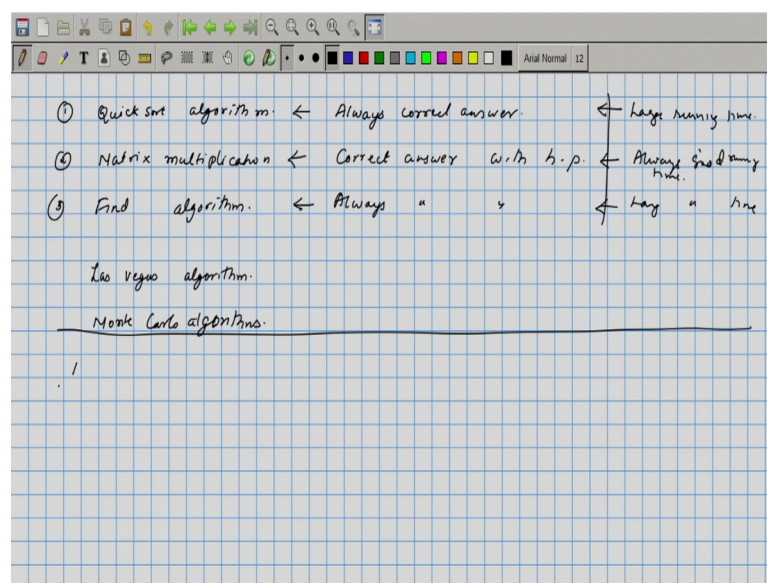 T Arial Normal 12
① Quick sort algorithm. ← Always correct answer. ← Large running time.
② Matrix multiplication ← Correct answer with h.p. ← Always good running time.
③ Find algorithm. ← Always " " ← " time
Las vegas algorithm.
Monte Carlo algorithms.